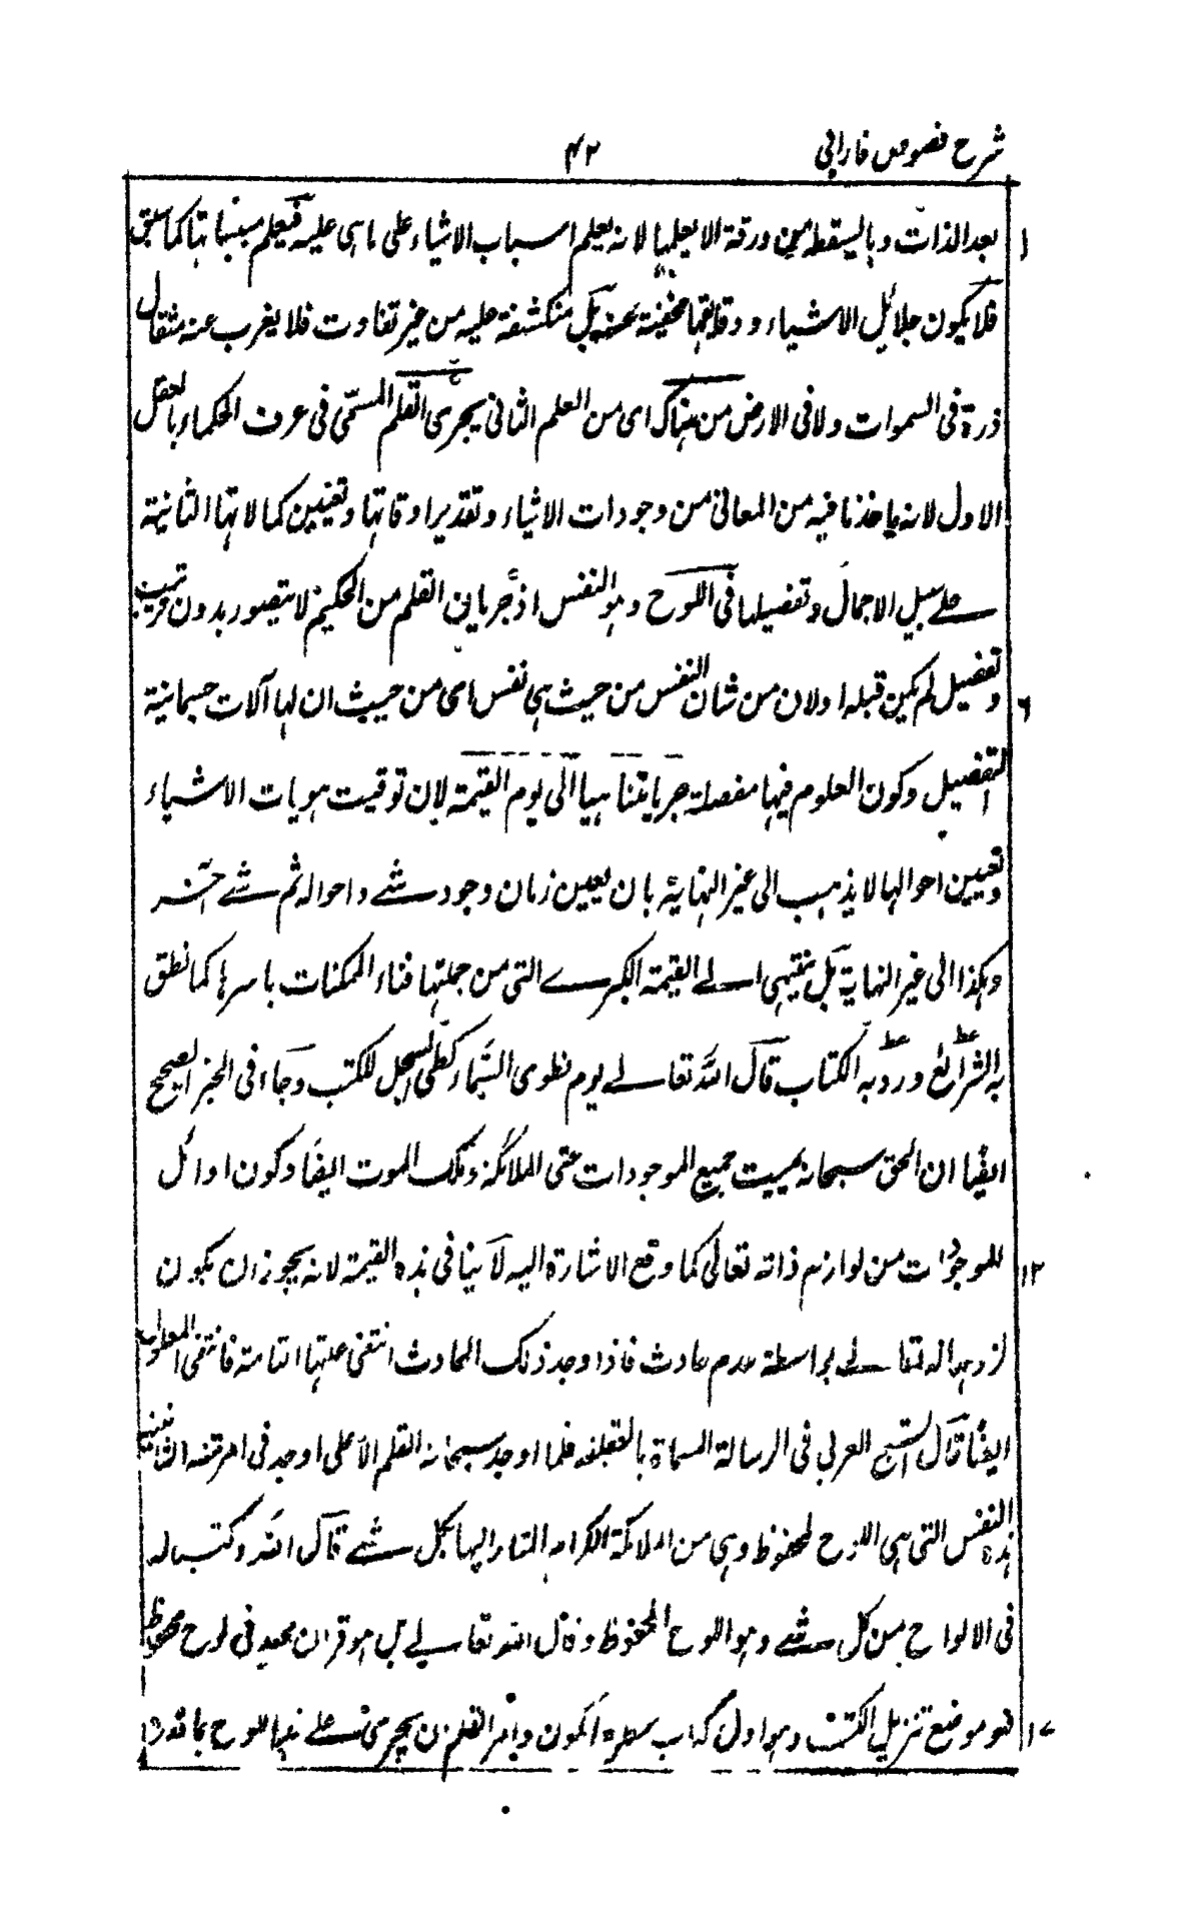 شرح فصوص فارابی
۴۲
۱
بعد الذات وما یسقط من ورقة الا یعلمها لانه یعلم اسباب الاشیاء علی ما هی علیه فیعلم مسبباتها کما سبق
فلا یکون جلائل الاشیاء ودقایقها مخفیة عنه بل منکشفة علیه من غیر تفاوت فلا یعزب عنه مثقال
ذرة فی السموات ولا فی الارض من هناک ای من العلم الثانی یجری القلم المسمّی فی عرف الحکماء بالعقل
الاول لانه یاخذ ما فیه من المعانی من وجودات الاشیاء وتقدیر اوقاتها وتعیین کمالاتها الثانیة
علے سبیل الاجمال وتفصیلها فی اللوح وهو النفس اذ جریان القلم من الحکیم لا یتصور بدون ترتیب
وتفصیل لم یکن قبله اولان من شان النفس من حیث هی نفس ای من حیث ان لها آلات جسمانیة
۶
التفصیل وکون العلوم فیها مفصلة جریا متناهیا الی یوم القیمة لان توقیت هویات الاشیاء
وتعیین احوالها لا یذهب الی غیر النهایة بان یعین زمان وجود شے واحواله ثم شے آخر
وهکذا الی غیر النهایة بل ینتهی الے القیمة الکبرے التی من جملتها فناء الممکنات باسرها کما نطق
به الشرائع وورد به الکتاب قال الله تعالے یوم نطوی السماء کطی السجل للکتب وجاء فی الخبر الصحیح
ایضا ان الحق سبحانه یمیت جمیع الموجودات حتی الملائکة وملک الموت ایضا وکون اوائل
الموجودات من لوازم ذاته تعالی کما وقع الاشارة الیه لا ینافی هذه القیمة لانه یجوز ان یکون
۱۲
لزومها له تعالے بواسطة عدم حادث فاذا وجد ذلک الحادث انتفی علتها التامة فانتفی المعلول
ایضا قال الشیخ العربی فی الرسالة المسماة بالعقلة فلما اوجد سبحانه القلم الاعلی اوجد فی مرتبه الثانیة
هذه النفس التی هی اللوح المحفوظ وهی من الملائکة الکرام المشار الیها بکل شے قال الله وکتبنا له
فی الالواح من کل شے وهو اللوح المحفوظ وقال الله تعالے بل هو قران مجید فی لوح محفوظ
فهو موضع تنزیل الکتب وهو اول کتاب سطره الکون وامر القلم ان یجری علے هذا اللوح بما قدره
۱۷